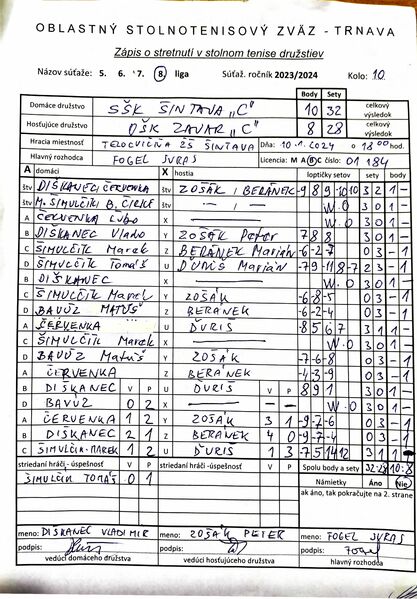 OBLASTNÝ STOLNOTENISOVÝ ZVÄZ - TRNAVA
Zápis o stretnutí v stolnom tenise družstiev
Názov súťaže: 5. 6. 7. 8. liga Súťaž. ročník 2023/2024 Kolo: 10
Body Sety
Domáce družstvo SŠK ŠINTAVA „C" 10 32 celkový výsledok
Hosťujúce družstvo OŠK ZAVAR „C" 8 28 celkový výsledok
Hracia miestnosť TELOCVIČŇA ZŠ ŠINTAVA Dňa: 10.1.2024 o 18 00 hod.
Hlavný rozhodca FOGEL JURAS Licencia: M A B C číslo: 01 184
A domáci X hostia loptičky setov sety body
štv DIŠKANEC, ČERVENKA štv ZOŠÁK, BERÁNEK -9 8 9 -10 10 3 2 1 -
štv M. ŠIMULČÍK, B. ČIRKÉ štv — / — W.O 3 0 1 -
A ČERVENKA Ľubo X — W.O 3 0 1 -
B DIŠKANEC Vlado Y ZOŠÁK Peter 7 8 8 3 0 1 -
C ŠIMULČÍK Marek Z BERÁNEK Marián -6 -2 -7 0 3 - 1
D ŠIMULČÍK Tomáš U ĎURIŠ Marián -7 9 -11 8 -7 2 3 - 1
B DIŠKANEC X — W.O 3 0 1 -
C ŠIMULČÍK Marek Y ZOŠÁK -6 -8 -5 0 3 - 1
D BAVÚZ MATÚŠ Z BERÁNEK -6 -2 -4 0 3 - 1
A ČERVENKA U ĎURIŠ -8 5 6 7 3 1 1 -
C ŠIMULČÍK Marek X — W.O 3 0 1 -
D BAVÚZ Matúš Y ZOŠÁK -7 -6 -8 0 3 - 1
A ČERVENKA Z BERÁNEK -4 -3 -9 0 3 - 1
B DIŠKANEC V P U ĎURIŠ V P 8 9 1 3 0 1 -
D BAVÚZ 0 2 X — W.O 3 0 1 -
A ČERVENKA 1 2 Y ZOŠÁK 3 1 -9 -7 -6 0 3 - 1
B DIŠKANEC 2 1 Z BERÁNEK 4 0 -9 -7 -4 0 3 - 1
C ŠIMULČÍK MAREK 1 2 U ĎURIŠ 1 3 -7 5 14 12 3 1 1 -
striedaní hráči - úspešnosť V P striedaní hráči - úspešnosť V P Spolu body a sety 32-28 10:8
ŠIMULČÍK TOMÁŠ 0 1 Námietky Áno Nie
ak áno, tak pokračujte na 2. strane
meno: DIŠKANEC VLADIMÍR meno: ZOŠÁK PETER meno: FOGEL JURAS
podpis: podpis: podpis: Fogel
vedúci domáceho družstva vedúci hosťujúceho družstva hlavný rozhodca